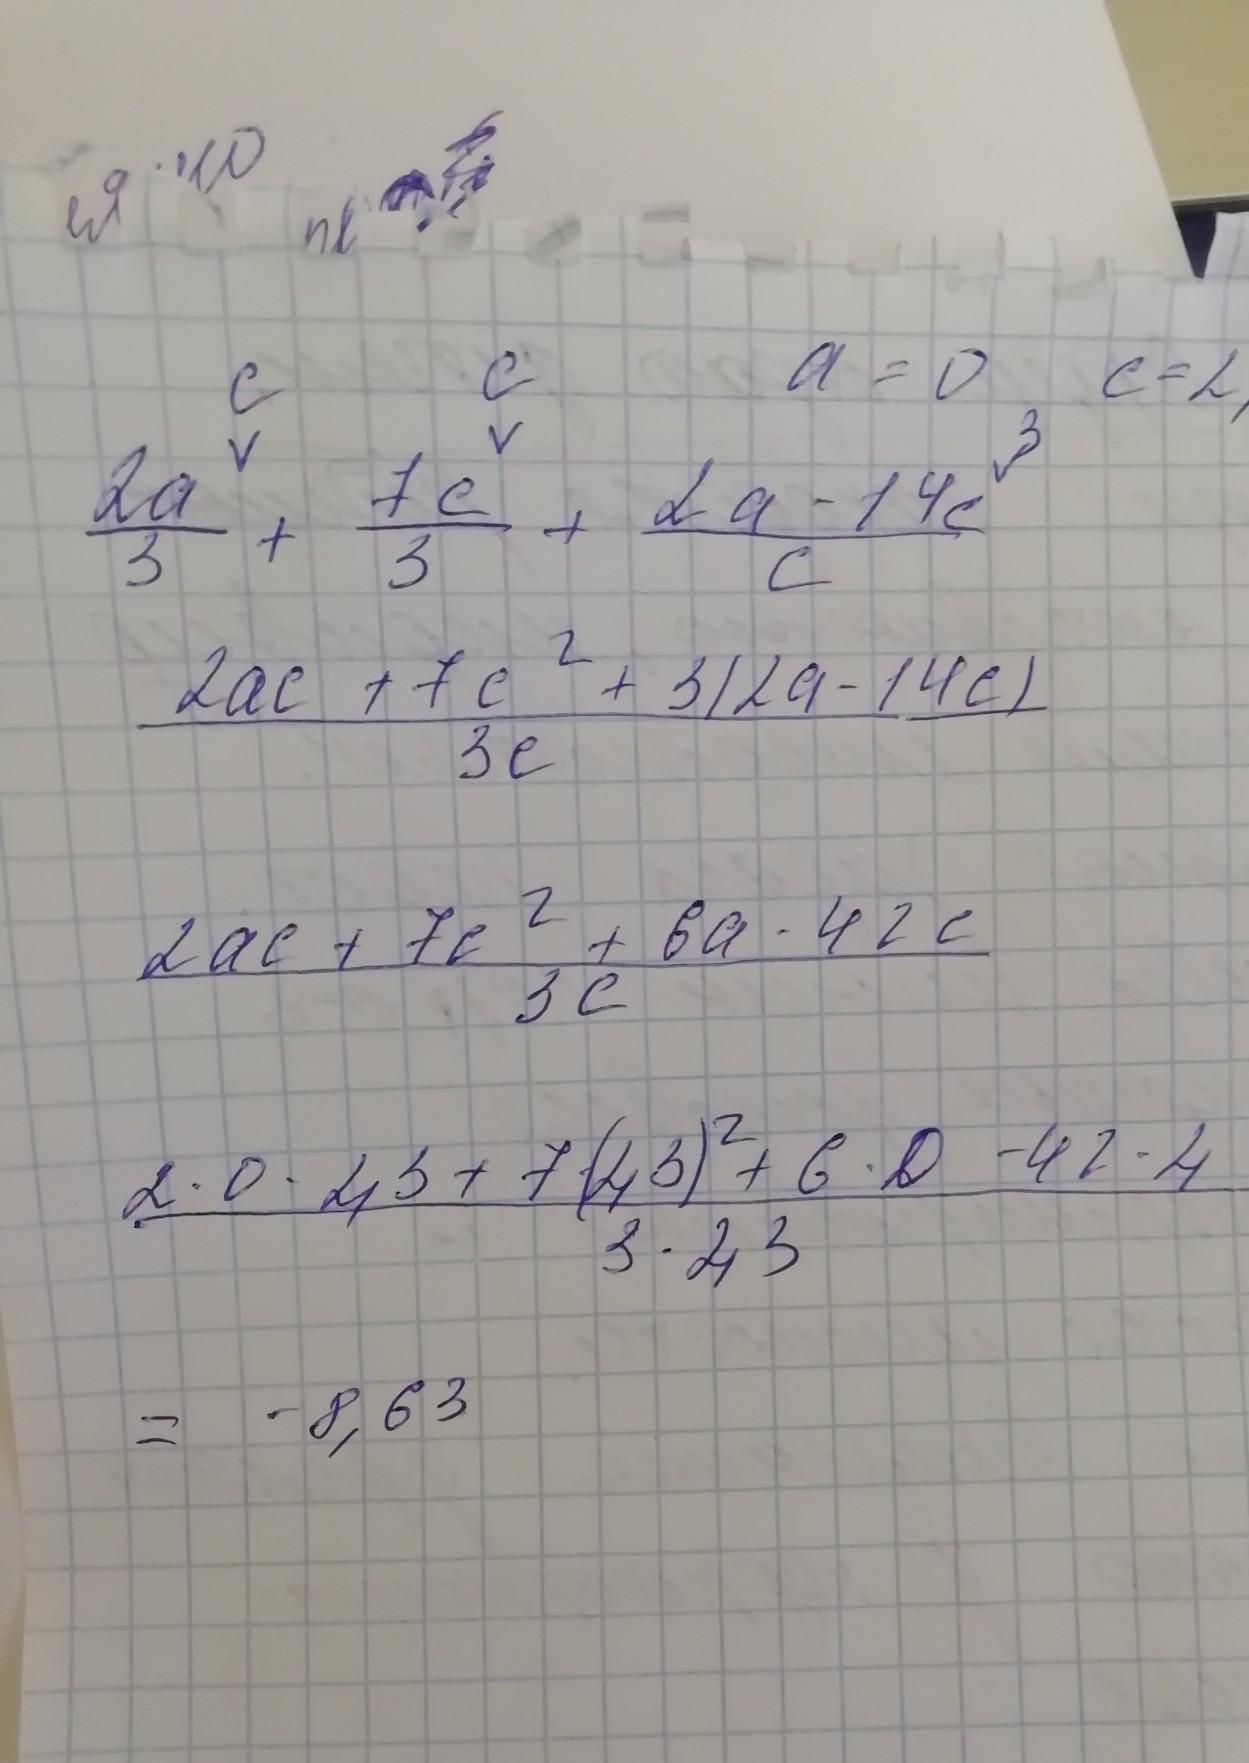 10
c c a = 0 c = 2,
2a/3 + 7c/3 + (2a - 14c)/c 3
(2ac + 7c² + 3(2a - 14c))/3c
(2ac + 7c² + 6a - 42c)/3c
(2 · 0 · 2,3 + 7(2,3)² + 6 · 0 - 42 · 2)/(3 · 2,3)
= -8,63